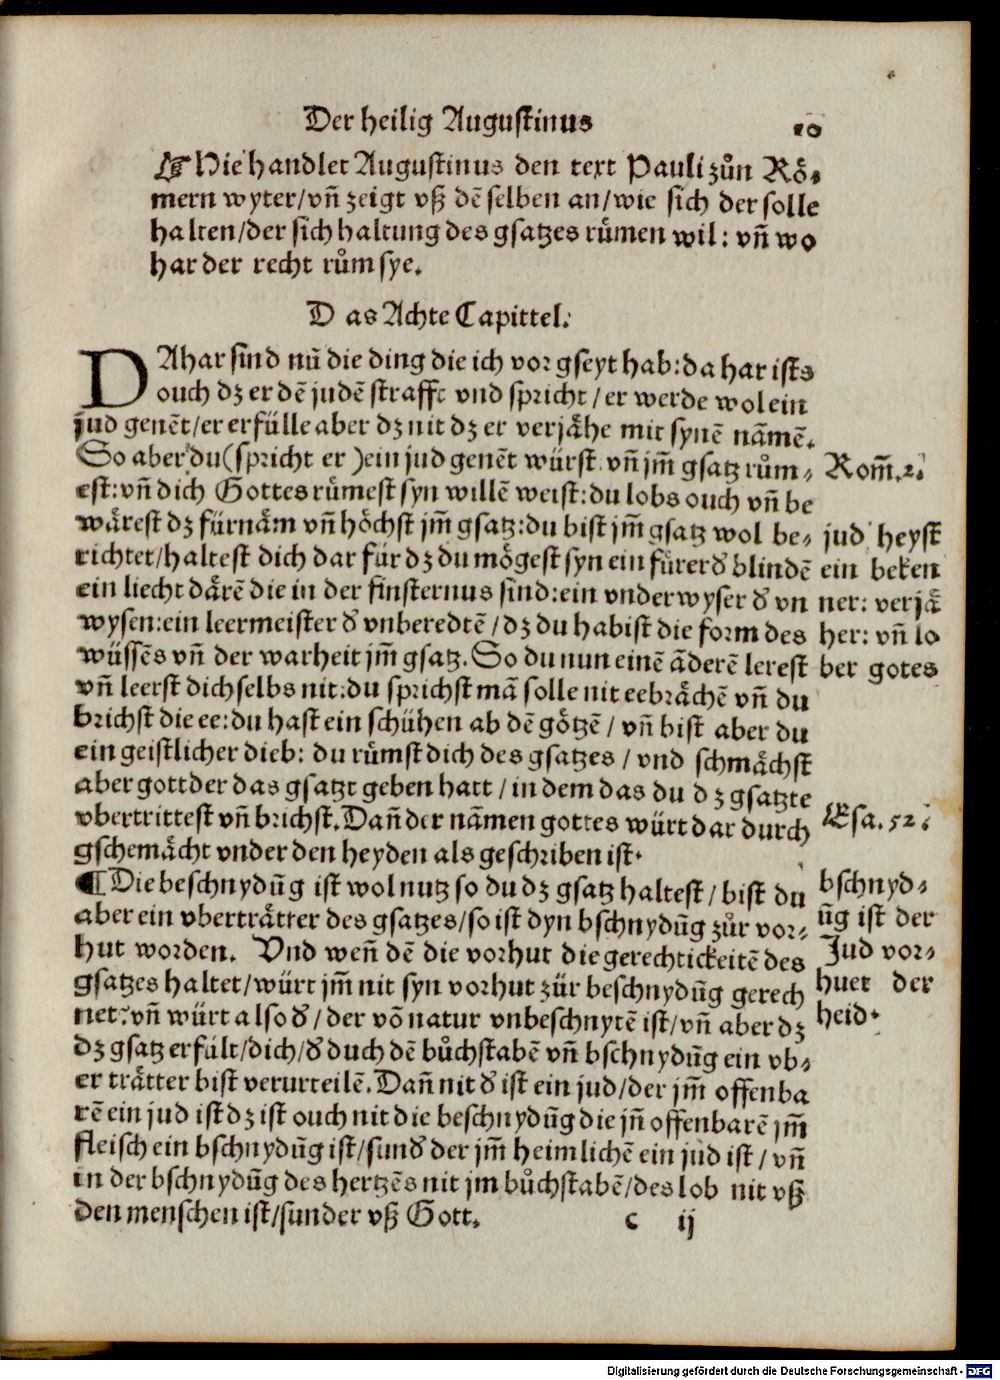 Der heilig Augustinus
10
☞ Hie handlet Augustinus den text Pauli zůn Rö⸗
mern wyter/vñ zeigt vß dē selben an/wie sich der solle
halten/der sich haltung des gsatzes růmen wil: vñ wo
har der recht rům sye.
Das Achte Capittel.
DAhar sind nū die ding die ich vor gseyt hab: da har ists
ouch dz er dē judē straffe vnd spricht/er werde wol ein
jud genēt/er erfülle aber dz nit dz er verjähe mit synē nāmē.
So aber du (spricht er) ein jud genēt würst vñ jm̄ gsatz rům⸗
est: vñ dich Gottes růmest syn willē weist: du lobs ouch vñ be
wärest dz fürnäm vñ höchst jm̄ gsatz: du bist jm̄ gsatz wol be⸗
richtet/haltest dich dar für dz du mögest syn ein fürer ď blindē
ein liecht därē die in der finsternus sind: ein vnderwyser ď vn
wysen: ein leermeister ď vnberedtē/dz du habist die form des
wüssēs vñ der warheit jm̄ gsatz. So du nun einē āderē lerest
vñ leerst dich selbs nit: du sprichst mā solle nit eebrächē vñ du
brichst die ee: du hast ein schühen ab dē götzē/vñ bist aber du
ein geistlicher dieb: du růmst dich des gsatzes/vnd schmächst
aber gott der das gsatzt geben hatt/in dem das du dz gsatzte
vbertrittest vñ brichst. Dañ der nāmen gottes würt dar durch
gschemächt vnder den heyden als geschriben ist.
¶ Die beschnydūg ist wol nutz so du dz gsatz haltest/bist du
aber ein vberträtter des gsatzes/so ist dyn bschnydūg zůr vor⸗
hut worden. Vnd weñ dē die vorhut die gerechtickeitē des
gsatzes haltet/würt jm̄ nit syn vorhut zür beschnydūg gerech
net: vñ würt also ď/der vō natur vnbeschnytē ist/vñ aber dz
dz gsatz erfült/dich/ď duch dē bůchstabē vñ bschnydūg ein vb⸗
er trätter bist verurteilē. Dañ nit ď ist ein jud/der jm̄ offenba
rē ein jud ist dz ist ouch nit die beschnydūg die jñ offenbarē jm̄
fleisch ein bschnydūg ist/sunď der jm̄ heimlichē ein jud ist/vñ
in der bschnydūg des hertzēs nit jm bůchstabē/des lob nit vß
den menschen ist/sunder vß Gott.
c ij
Rom̄.2.
jud heyst
ein beken
ner: verjä
her: vñ lo
ber gotes
Esa.52.
bschnyd⸗
ūg ist der
Jud vor⸗
huet der
heid.
Digitalisierung gefördert durch die Deutsche Forschungsgemeinschaft - DFG